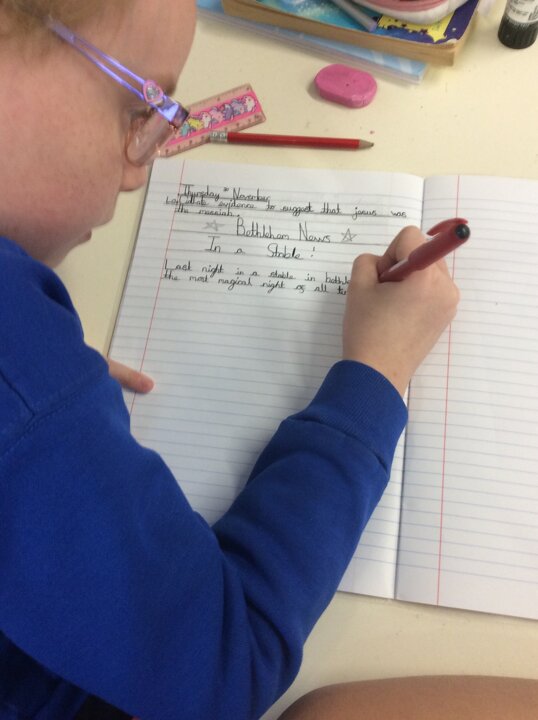 Thursday November
evidence to suggest that jesus was
the messiah.
Bethlehem News
In a Stable!
Last night in a stable in bethl
the most magical night of all